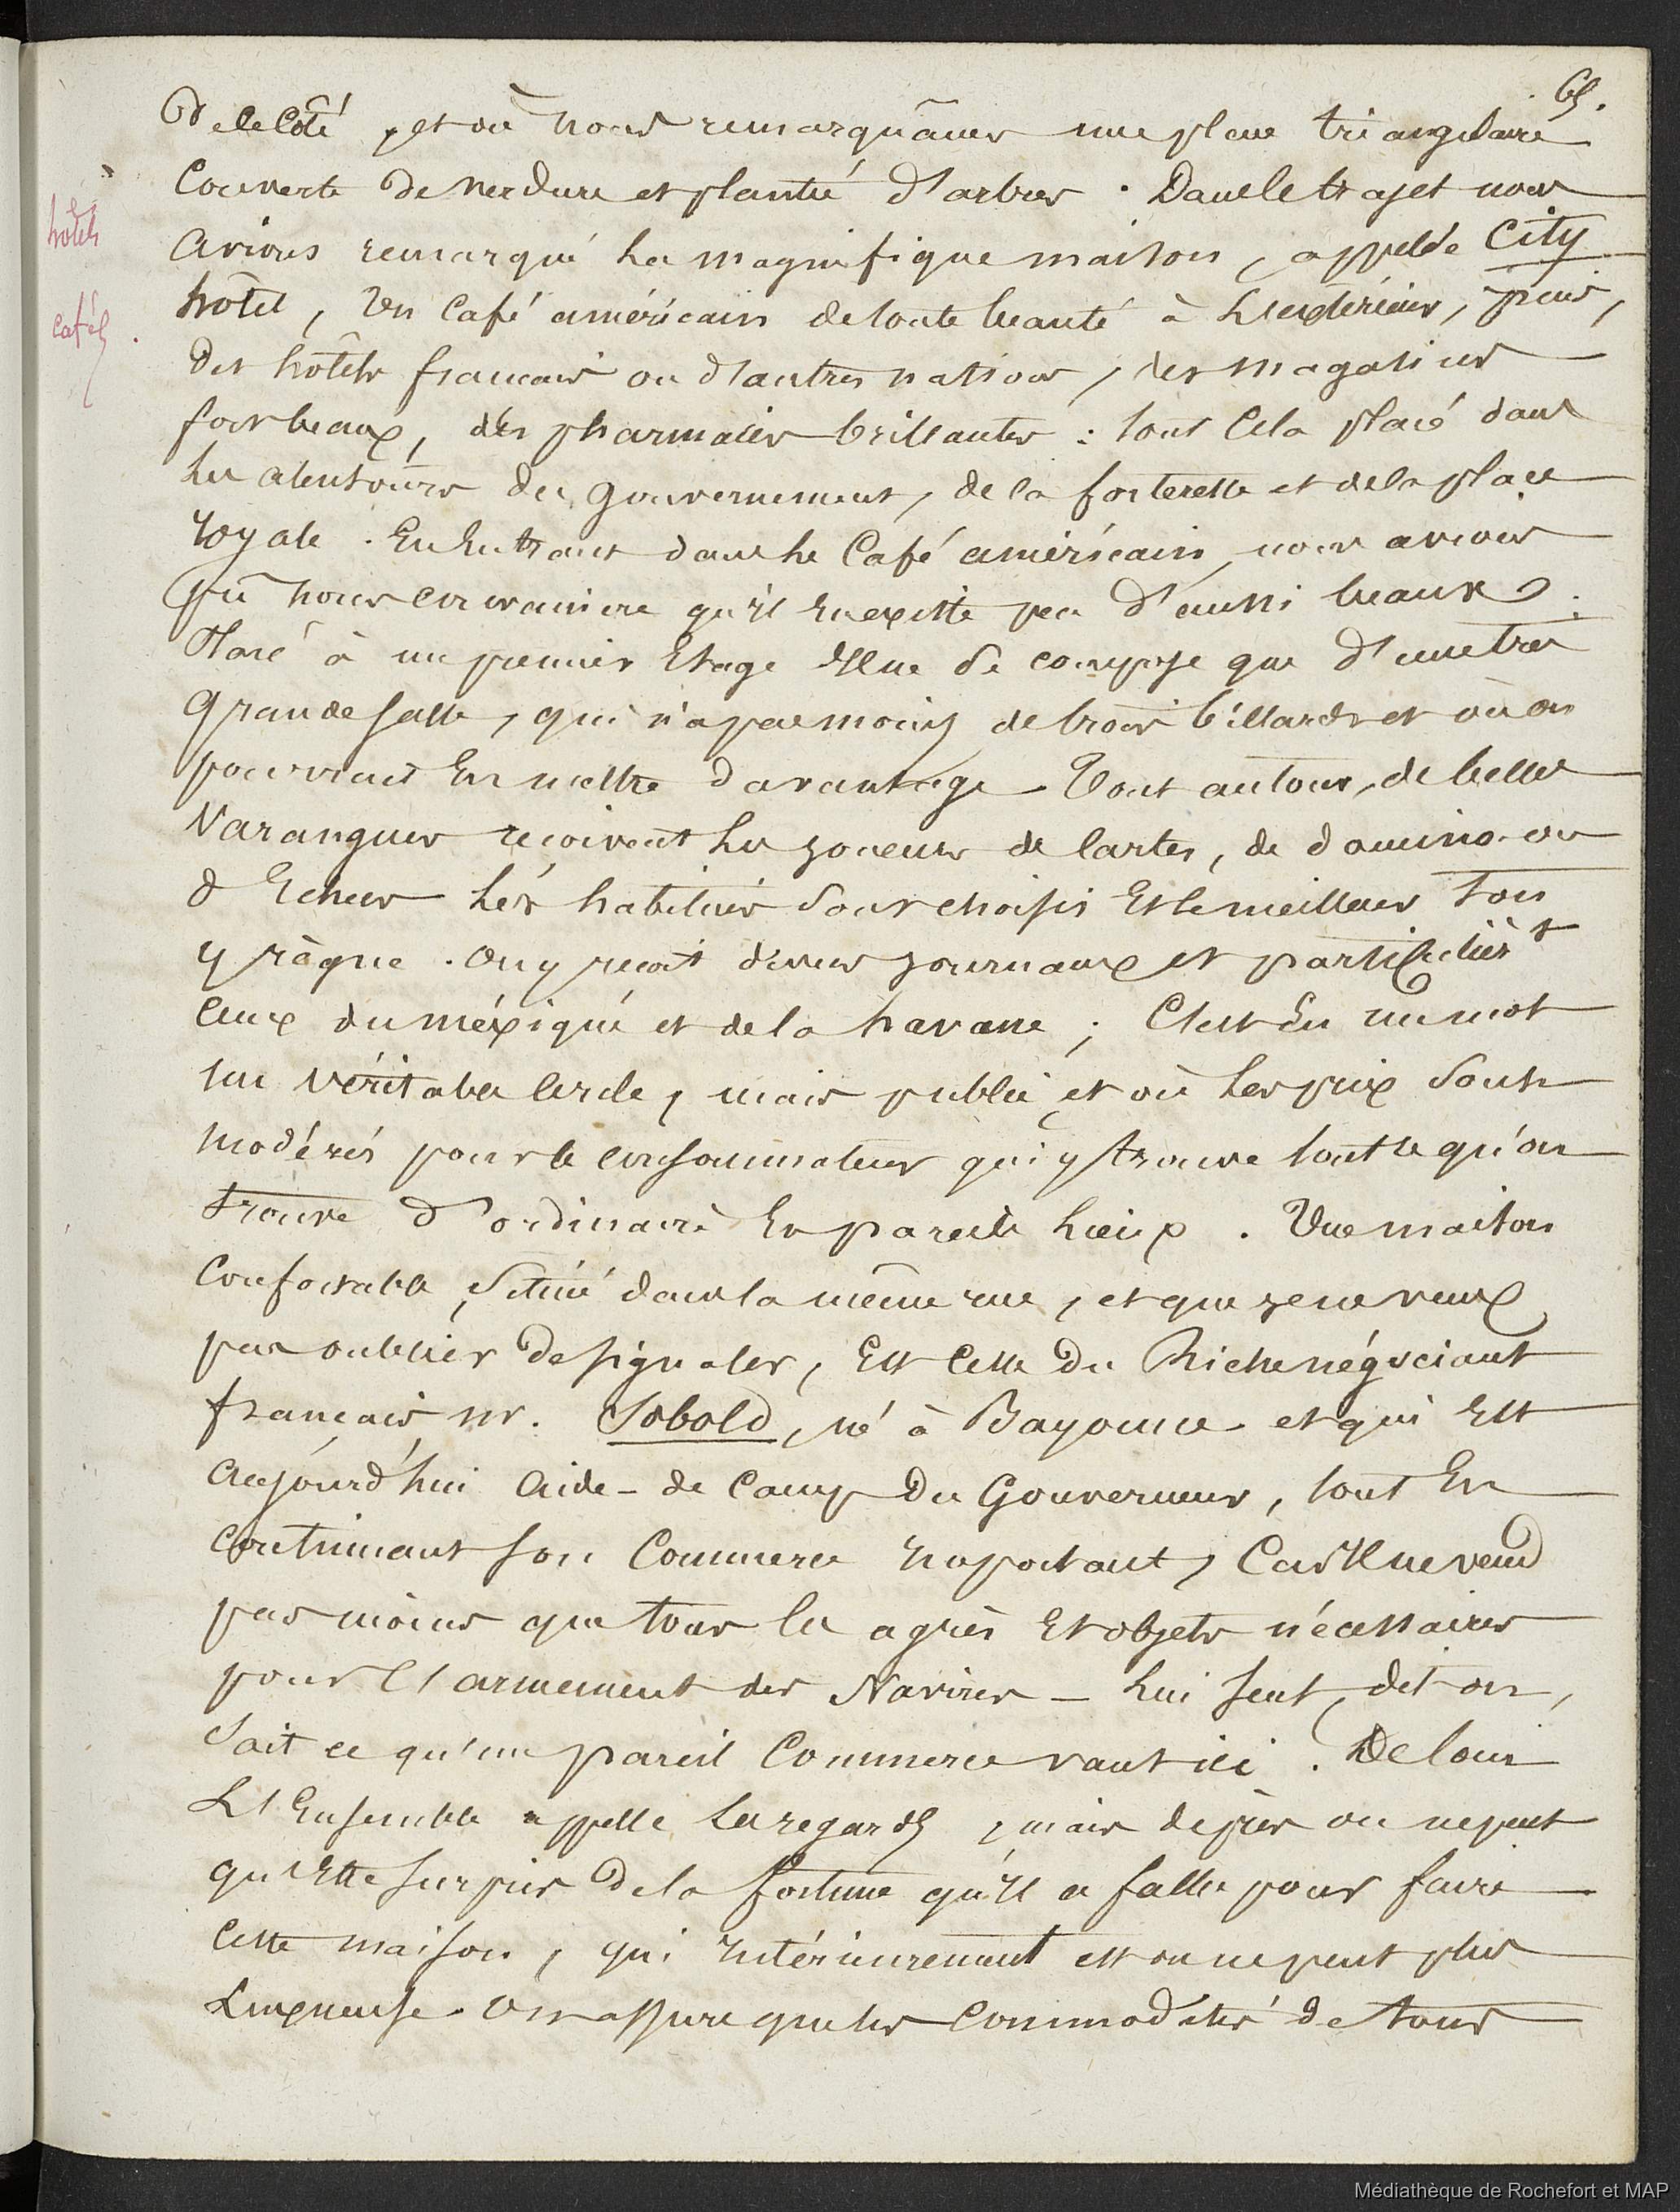 65.
De ce côté, et où nous remarquâmes une place triangulaire
Couverte de verdure et planté d'arbres. Dans le trajet nous
avions remarqué La magnifique maison, appelée City
hôtel, Un Café américain de toute beauté à L'extérieur, puis,
des hôtels francais ou d'autres nations, des magasins
fort beaux, des pharmacies brillantes : tout Cela placé dans
Les alentours du gouvernement, de la forteresse et de la place
royale. En Entrant dans Le Café américain, nous avions
pû nous convaincre qu'il En existe peu d'aussi beaux.
Placé à un premier Etage Il ne se compose que d'une très
grande salle, qui n'a pas moins de trois billards et où on
pourrait En mettre davantage. Tout autour, de belles
Varangues recoivent Les joueurs de Cartes, de domino ou
d'Echecs. Les habitués sont choisis Et le meilleur ton
y règne. On y recoit divers journaux et particulièrt
Ceux du méxique et de la havane ; C'est En un mot
un véritable Cercle, mais public, et où Les prix sont
modérés pour le consommateur qui y trouve tout ce qu'on
trouve d'ordinaire En pareils Lieux. Une maison
Confortable, située dans la même rue, et que je ne veux
pas oublier de signaler, Est Celle du Riche négociant
francais mr. Sobold, né à Bayonne et qui Est
aujourd'hui aide-de Camp du Gouverneur, tout En
Continuant son Commerce Important, Car Il ne vend
pas moins que tous les agrès Et objets nécessaires
pour l'armement des Navires — Lui seul, dit on,
sait ce qu'un pareil Commerce vaut ici. De loin
L'Ensemble appelle Les regards, mais de près on ne peut
qu'Etre surpris de la fortune qu'Il a fallu pour faire
Cette maison, qui Intérieurement est on ne peut plus
Luxueuse. On assure que les Commodités de tous
hôtels
et
cafés.
Médiathèque de Rochefort et MAP